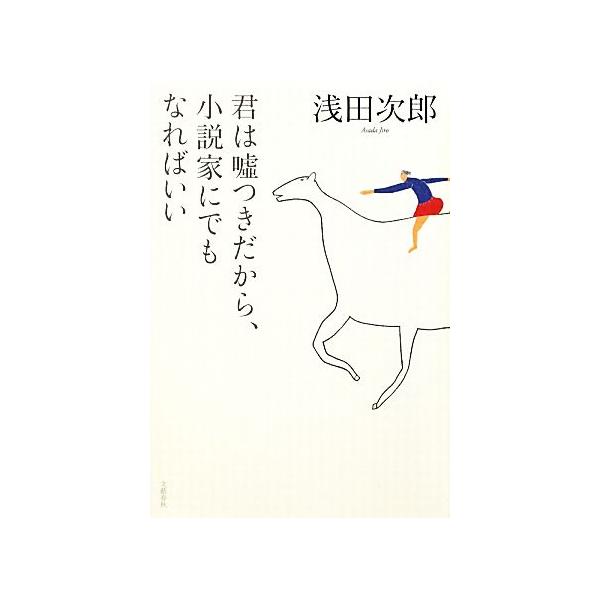 浅田次郎
Asada Jiro
君は嘘つきだから、
小説家にでも
なればいい
文藝春秋